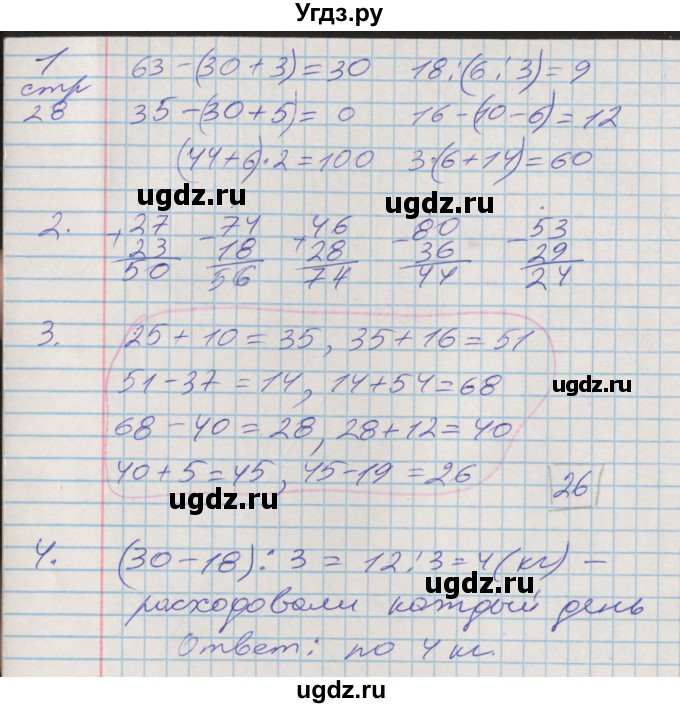 Угдз.ру
1 63-(30+3)=30 18:(6:3)=9
стр
28 35-(30+5)=0 16-(10-6)=12
(44+6)·2=100 3·(6+14)=60
ugdz.ru ugdz.ru
2. +27 -74 +46 -80 -53
23 18 28 36 29
50 56 74 44 24
3. 25+10=35, 35+16=51
51-37=14, 14+54=68
ugdz.ru
68-40=28, 28+12=40
40+5=45, 45-19=26 26
ugdz.ru
4. (30-18):3=12:3=4(кг)-
расходовали каждый день
ugdz.ru
Ответ: по 4 кг.
ugdz.ru